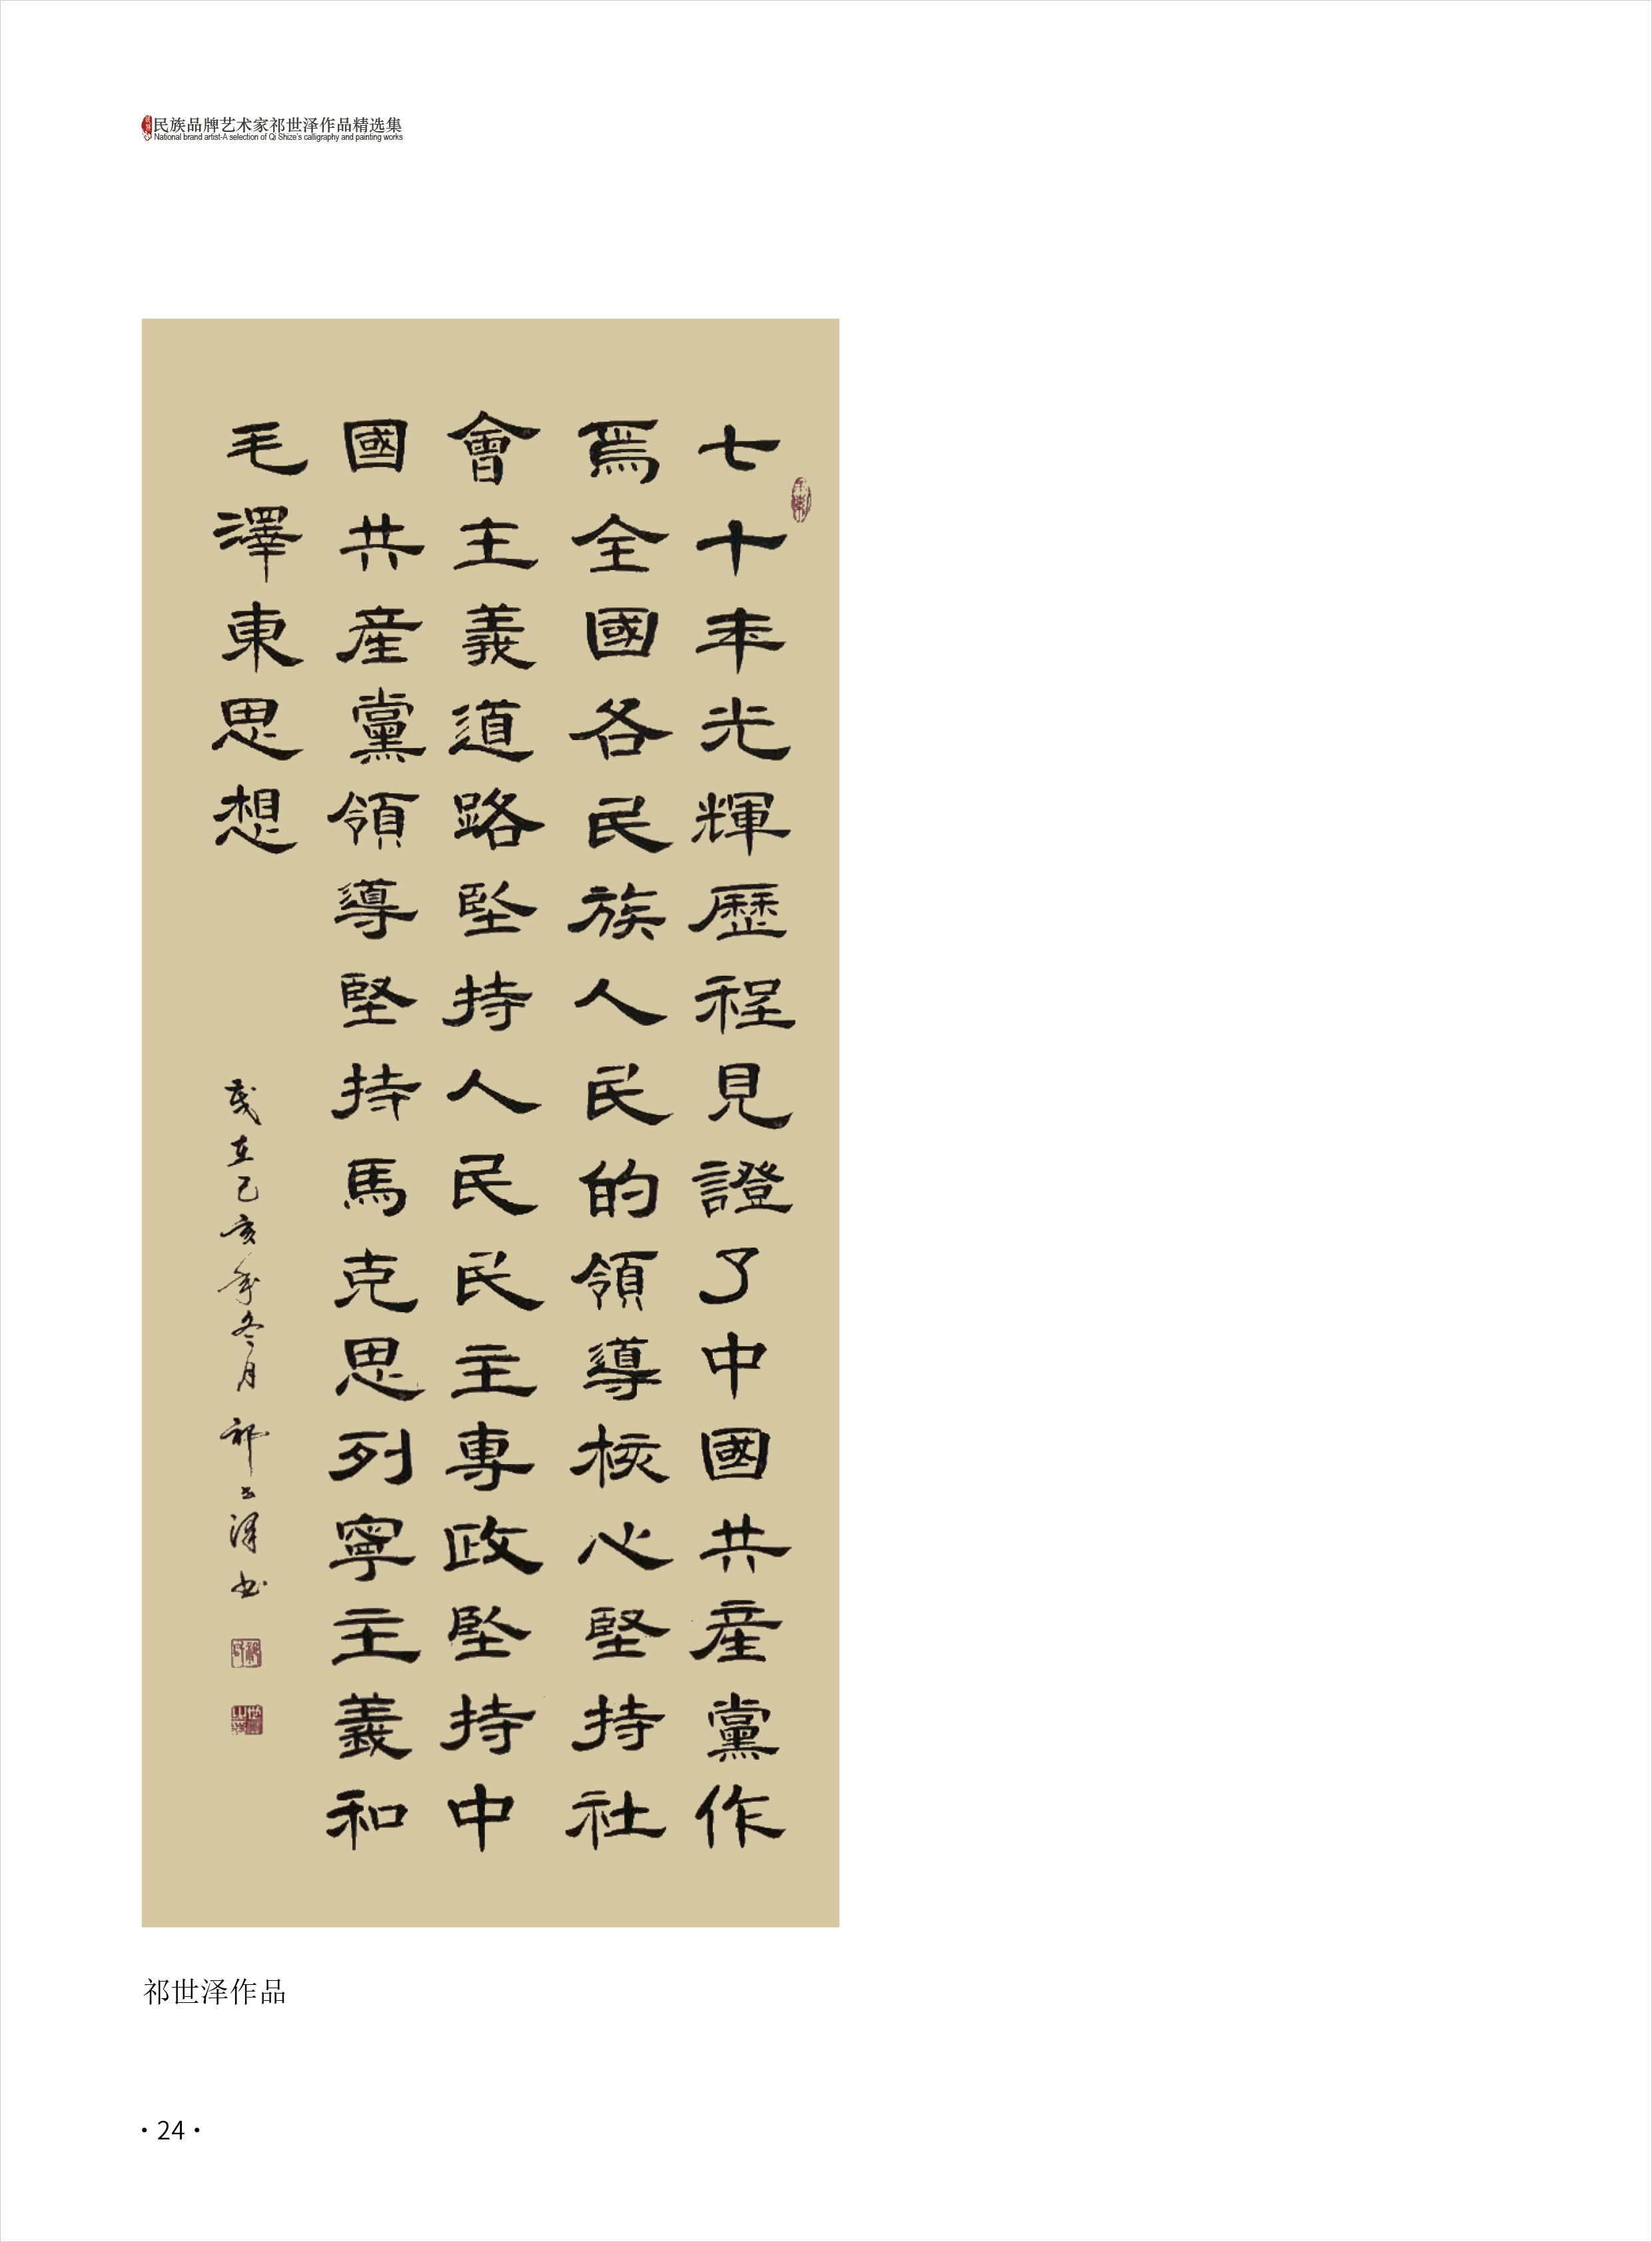 民族品牌艺术家祁世泽作品精选集
National brand artist-A selection of Qi Shize's calligraphy and painting works
七十年光輝歷程見證了中國共産黨作
焉全國各民族人民的領導核心堅持社
會主義道路堅持人民民主專政堅持中
國共産黨領導堅持馬克思列寧主義和
毛澤東思想
歲在己亥年冬月 祁世澤书
祁世泽作品
·24·